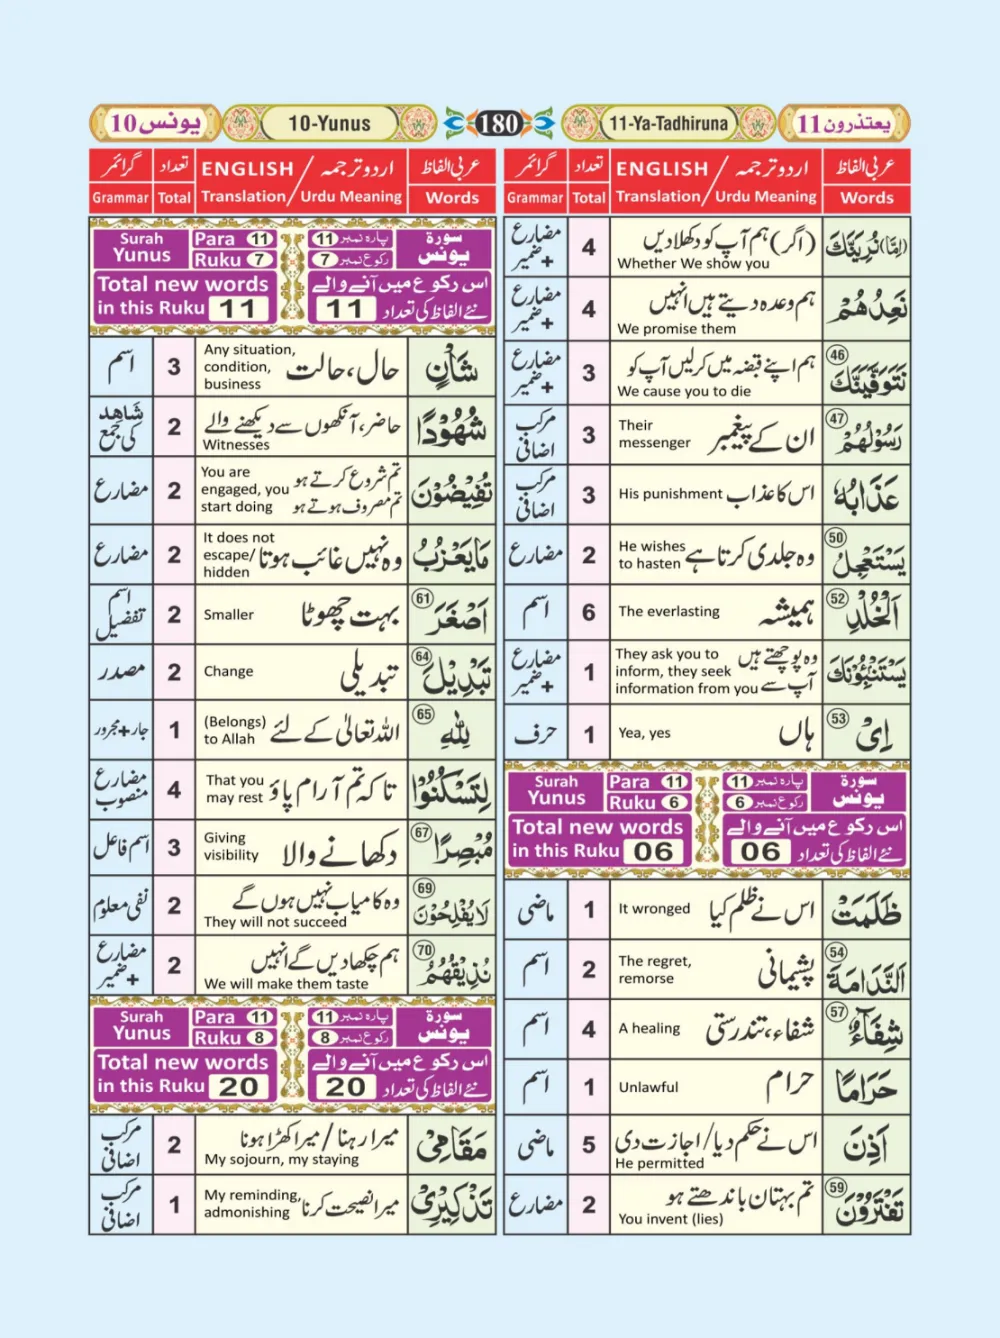 يونس 10
10-Yunus
180
11-Ya-Tadhiruna
يعتذرون 11
عربی الفاظ اردو ترجمہ / ENGLISH تعداد گرائمر
Words Translation / Urdu Meaning Total Grammar
(اِمَّا) نُرِيَنَّكَ (اگر) ہم آپ کو دکھلا دیں 4 مضارع + ضمیر
Whether We show you
نَعِدُهُمْ ہم وعدہ دیتے ہیں انہیں 4 مضارع + ضمیر
We promise them
46 نَتَوَفَّيَنَّكَ ہم اپنے قبضہ میں کرلیں آپ کو 3 مضارع + ضمیر
We cause you to die
47 رَسُوْلُهُمْ ان کے پیغمبر Their messenger 3 مرکب اضافی
عَذَابُهٗ اس کا عذاب His punishment 3 مرکب اضافی
50 يَسْتَعْجِلُ وہ جلدی کرتا ہے He wishes to hasten 2 مضارع
52 اَلْخُلْدِ ہمیشہ The everlasting 6 اسم
يَسْتَنْۢبِـُٔوْنَكَ وہ پوچھتے ہیں آپ سے They ask you to inform, they seek information from you 1 مضارع + ضمیر
53 اِیْ ہاں Yea, yes 1 حرف
سورۃ يونس پارہ نمبر 11 Para 11 Surah Yunus
رکوع نمبر 6 Ruku 6
اس رکوع میں آنے والے Total new words
نئے الفاظ کی تعداد 06 in this Ruku 06
ظَلَمَتْ اس نے ظلم کیا It wronged 1 ماضی
54 اَلنَّدَامَةَ پشیمانی The regret, remorse 2 اسم
57 شِفَآءٌ شفاء، تندرستی A healing 4 اسم
حَرَامًا حرام Unlawful 1 اسم
اَذِنَ اس نے حکم دیا/اجازت دی 5 ماضی
He permitted
59 تَفْتَرُوْنَ تم بہتان باندھتے ہو 2 مضارع
You invent (lies)
عربی الفاظ اردو ترجمہ / ENGLISH تعداد گرائمر
Words Translation / Urdu Meaning Total Grammar
سورۃ يونس پارہ نمبر 11 Para 11 Surah Yunus
رکوع نمبر 7 Ruku 7
اس رکوع میں آنے والے Total new words
نئے الفاظ کی تعداد 11 in this Ruku 11
شَاْنٍ حال، حالت Any situation, condition, business 3 اسم
شُهُوْدًا حاضر، آنکھوں سے دیکھنے والے 2 شاھد کی جمع
Witnesses
تُفِيْضُوْنَ تم شروع کرتے ہو تم مصروف ہوتے ہو You are engaged, you start doing 2 مضارع
مَا يَعْزُبُ وہ نہیں غائب ہوتا It does not escape/ hidden 2 مضارع
61 اَصْغَرَ بہت چھوٹا Smaller 2 اسم تفضیل
64 تَبْدِيْلَ تبدیلی Change 2 مصدر
65 لِلّٰهِ اللہ تعالیٰ کے لئے (Belongs) to Allah 1 جار+مجرور
لِتَسْكُنُوْا تاکہ تم آرام پاؤ That you may rest 4 مضارع منصوب
67 مُبْصِرًا دکھانے والا Giving visibility 3 اسم فاعل
69 لَا يُفْلِحُوْنَ وہ کامیاب نہیں ہوں گے 2 نفی معلوم
They will not succeed
70 نُذِيْقُهُمُ ہم چکھادیں گے انہیں 2 مضارع + ضمیر
We will make them taste
سورۃ يونس پارہ نمبر 11 Para 11 Surah Yunus
رکوع نمبر 8 Ruku 8
اس رکوع میں آنے والے Total new words
نئے الفاظ کی تعداد 20 in this Ruku 20
مَقَامِیْ میرا رہنا / میرا کھڑا ہونا 2 مرکب اضافی
My sojourn, my staying
تَذْكِيْرِیْ میرا نصیحت کرنا My reminding, admonishing 1 مرکب اضافی